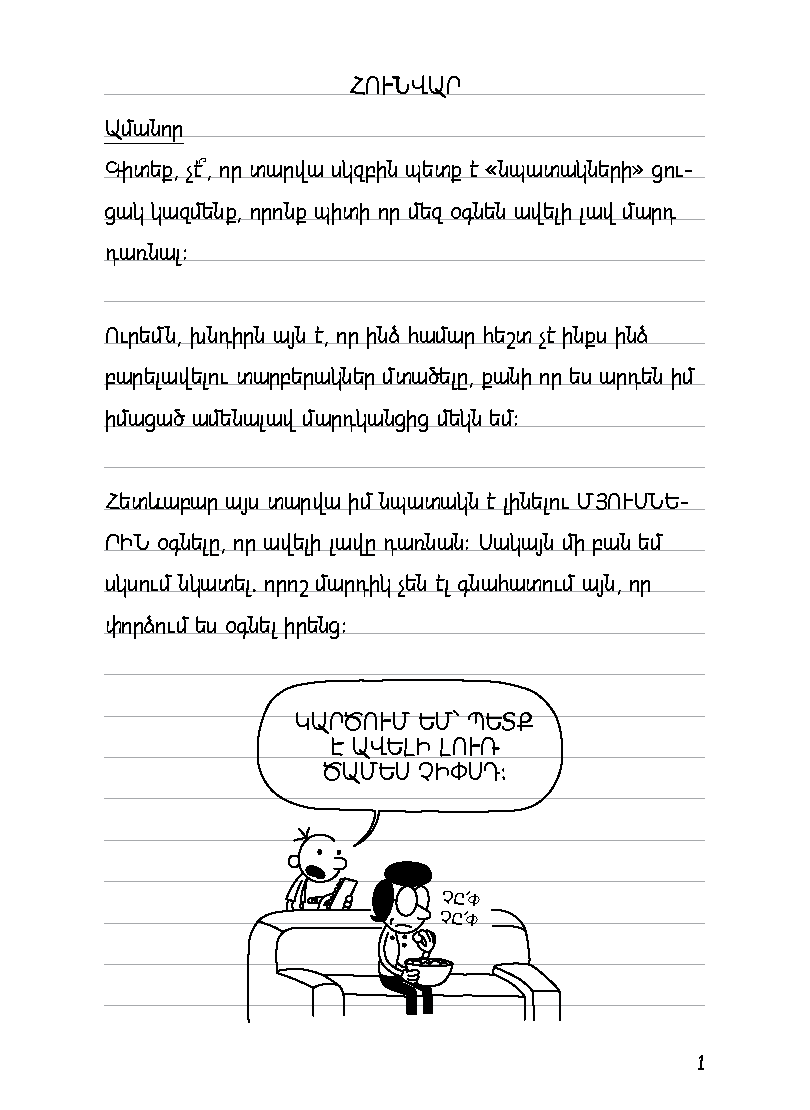 ՀՈՒՆՎԱՐ
Ամանոր
Գիտեք, չէ՞, որ տարվա սկզբին պետք է «նպատակների» ցու-
ցակ կազմենք, որոնք պիտի որ մեզ օգնեն ավելի լավ մարդ
դառնալ:
Ուրեմն, խնդիրն այն է, որ ինձ համար հեշտ չէ ինքս ինձ
բարելավելու տարբերակներ մտածելը, քանի որ ես արդեն իմ
իմացած ամենալավ մարդկանցից մեկն եմ:
Հետևաբար այս տարվա իմ նպատակն է լինելու ՄՅՈՒՍՆԵ-
ՐԻՆ օգնելը, որ ավելի լավը դառնան: Սակայն մի բան եմ
սկսում նկատել. որոշ մարդիկ չեն էլ գնահատում այն, որ
փորձում ես օգնել իրենց:
ԿԱՐԾՈՒՄ ԵՄ՝ ՊԵՏՔ
Է ԱՎԵԼԻ ԼՈՒՌ
ԾԱՄԵՍ ՉԻՓՍԴ:
ՉԸ՛Փ
ՉԸ՛Փ
1